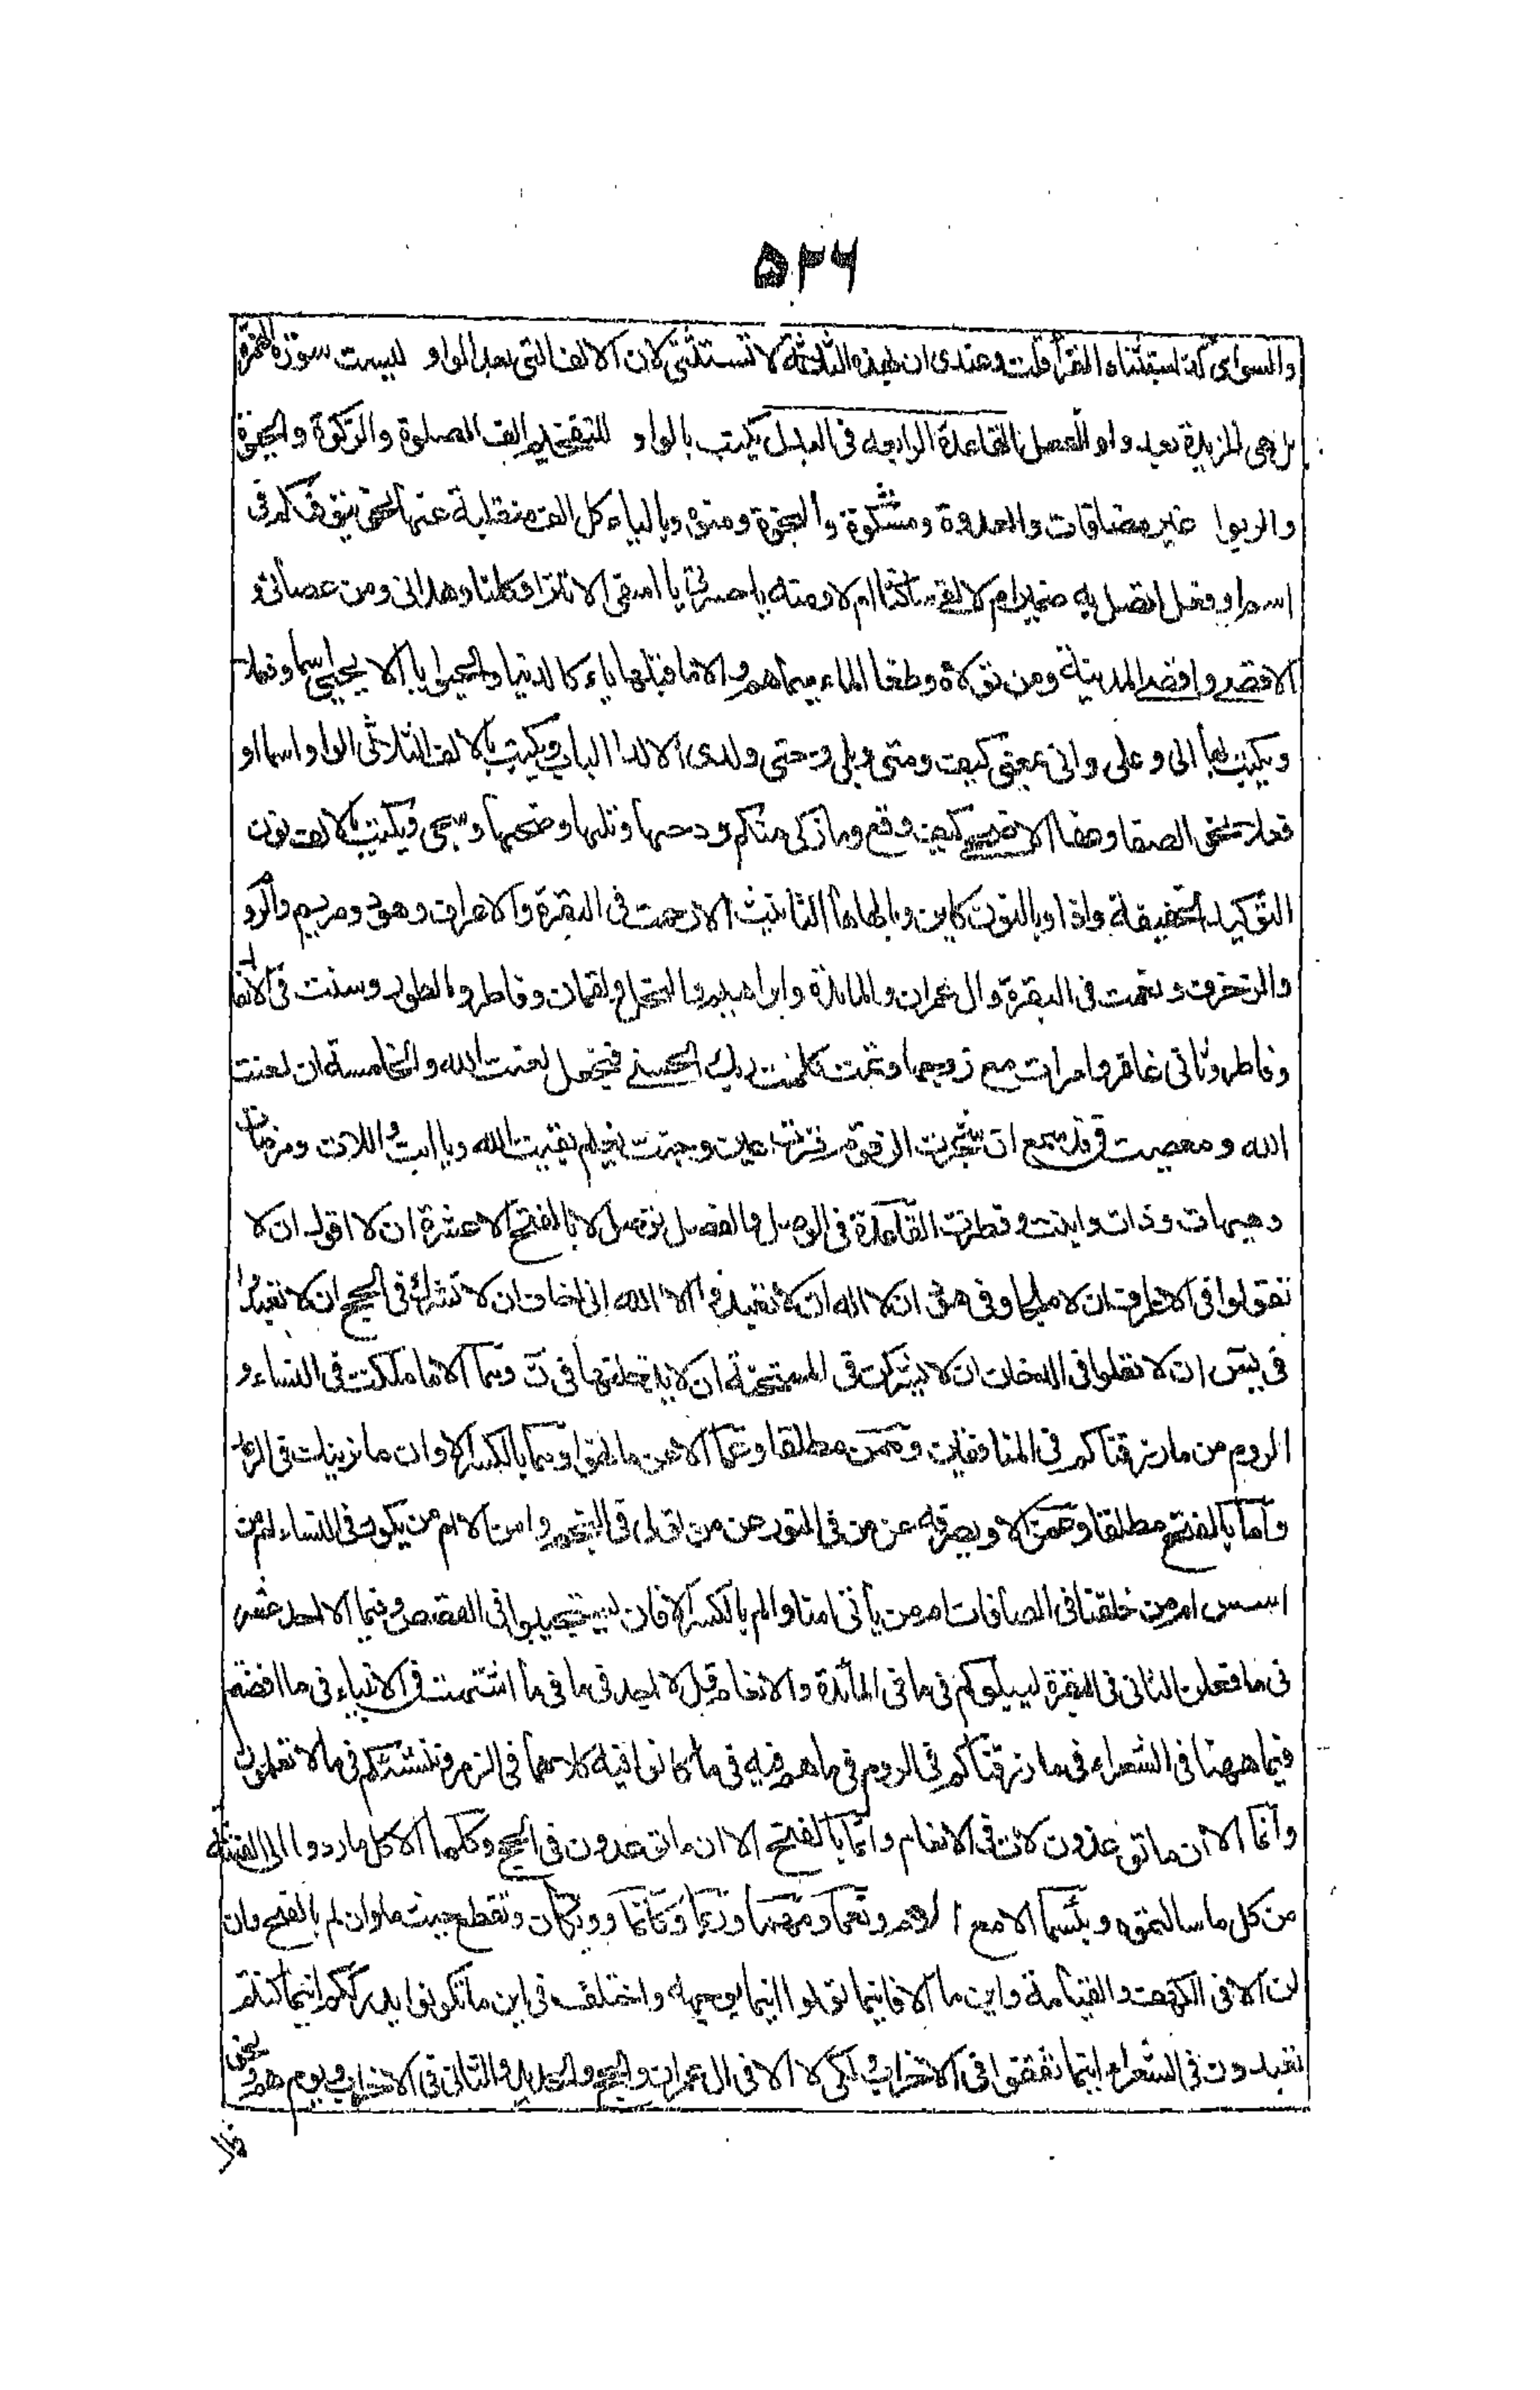 ۵۲۶
والسوأى كذا استثناه الفراء قلت وعندى ان هذه الثلاثة لا تستثنى لان الالف التى بعد الواو ليست سورة الهمزة
بل هى المزيدة بعد واو الفعل القاعدة الرابعه فى البدل يكتب بالواو للتفخيم الف الصلوة والزكوة والحيوة
والربوا غير مضافات والغدوة ومشكوة والنجوة ومنوة وبالياء كل الف منقلبة عنها نحو يتوفىكم فى
اسم او فعل اتصل به ضمير ام لا لقى ساكنا ام لا ومنه يا حسرتى يا اسفى الا تترا وكلتا وهدانى ومن عصانى و
الاقصى واقصى المدينة ومن تولاه وطغا الماء سيماهم والا ما قبلها ياء كالدنيا والحوايا الا يحيى اسما وفعلا
ويكتب بها الى وعلى وانى بمعنى كيف ومتى وبلى وحتى ولدى الا لدا الباب ويكتب بالالف الثلاثى الواو اسما او
فعلا نحو الصفا وعفا الا ضحى كيف وقع وما زكى منكم ودحيها وتليها وضحيها وسجى ويكتب بالالف نون
التوكيد الخفيفة واذا وبالنون كاين وبالهاء هاء التانيث الا رحمت فى البقرة والاعراف وهود ومريم والرو
والزخرف ونعمت فى البقرة وال عمران والمائدة وابراهيم والنحل ولقمان وفاطر والطور وسنت فى الانفا
وفاطر وثانى غافر وامرات مع زوجها وتمت كلمت ربك الحسنى فنجعل لعنت الله والخامسة ان لعنت
الله ومعصيت فى قد سمع ان شجرت الزقوم قرت عين وجنت نعيم بقيت الله ويا ابت واللات ومرضات
وهيهات وذات وابنت وفطرت القاعدة فى الوصل والفصل توصل الا بالفتح الا عشرة ان لا اقول ان لا
تقولوا فى الاعراف ان لا ملجا وفى هود ان لا اله ان لا تعبدوا الا الله انى اخاف ان لا تشرك فى الحج ان لا تعبدوا
فى يس ان لا تعلوا فى الدخان ان لا يشركن فى الممتحنة ان لا يدخلنها فى ن ومما الا من ما ملكت فى النساء و
الروم من ما رزقناكم فى المنافقين وممن مطلقا وعما الا عن ما نهوا وما بالكسر الا وان ما نرينك فى الرعد
واما بالفتح مطلقا وعمن الا ويصرفه عن من فى النور عن من تولى فى النجم وامن الا ام من يكون فى النساء ام من
اسس ام من خلقنا فى الصافات ام من يأتى امنا والم بالكسر الا فان لم يستجيبوا فى القصص وفيما الا احد عشر
فى ما فعلن الثانى فى البقرة ليبلوكم فى ما فى المائدة والانعام قل لا اجد فى ما فى ما اشتهت فى الانبياء فى ما افضتم
فيما ههنا فى الشعراء فى ما رزقناكم فى الروم فى ما هم فيه فى ما كانوا فيه كلاهما فى الزمر وننشئكم فى ما لا تعلمون
وانما الا ان ما توعدون لات فى الانعام وانما بالفتح الا ان ما توعدون فى الحج وكلما الا كل ما ردوا الى الفتنة
من كل ما سالتموه وبئسما الا مع اللام ونعما ومهما وربما وكانما وويكان وتقطع حيث ما وان لم بالفتح وان
لن الا فى الكهف والقيامة واين ما الا فاينما تولوا اينما يوجهه واختلف فى اين ما تكونوا يدرككم اينما كنتم
تعبدون فى الشعراء اينما ثقفوا فى الاحزاب ولكى لا الا فى ال عمران والحج والحديد والثانى فى الاحزاب ويوم هم ونحو